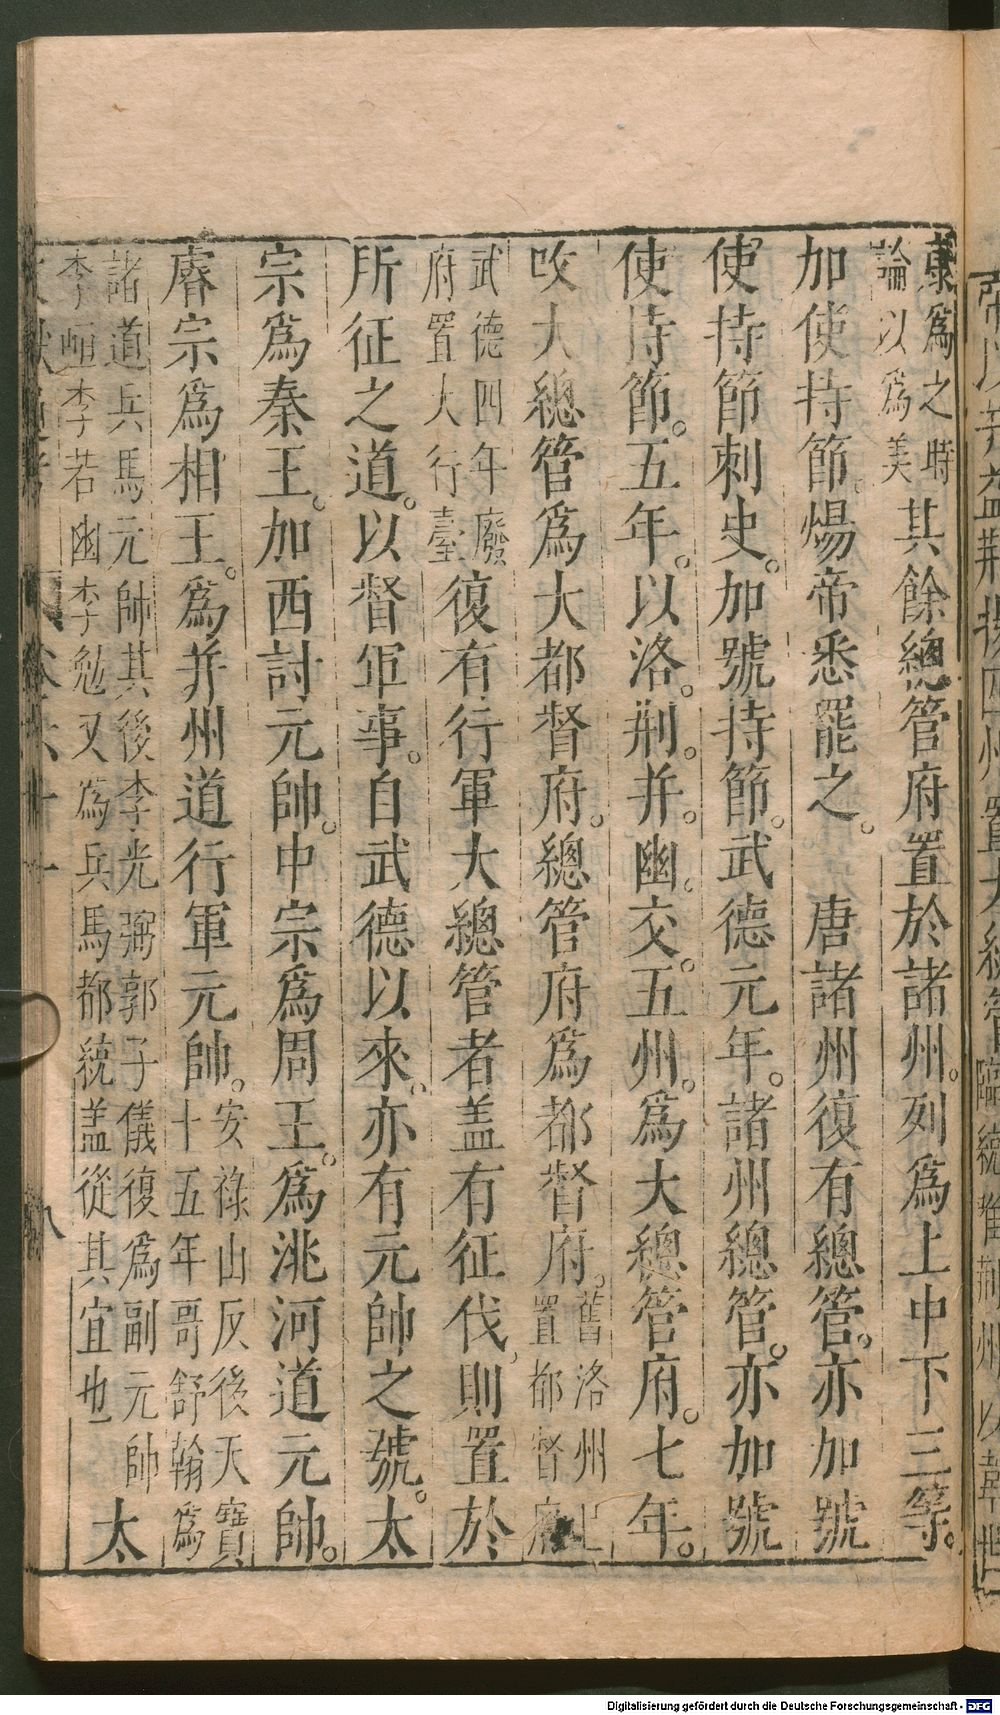 康爲之時
論以爲美
其餘總管府置於諸州。列爲上中下三等。
加使持節。煬帝悉罷之。　唐諸州復有總管。亦加號
使持節刺史。加號持節。武德元年。諸州總管。亦加號
使持節。五年。以洛。荆。并。幽。交。五州。爲大總管府。七年。
改大總管爲大都督府。總管府爲都督府。
舊洛州
置都督府
武德四年廢
府置大行臺
復有行軍大總管者盖有征伐則置於
所征之道。以督軍事。自武德以來。亦有元帥之號。太
宗爲秦王。加西討元帥。中宗爲周王。爲洮河道元帥。
睿宗爲相王。爲并州道行軍元帥。
安祿山反後天寶
十五年哥舒翰爲
諸道兵馬元帥其後李光弼郭子儀復爲副元帥
李峘李若幽李勉又爲兵馬都統盖從其宜也
太
八
Digitalisierung gefördert durch die Deutsche Forschungsgemeinschaft - DFG